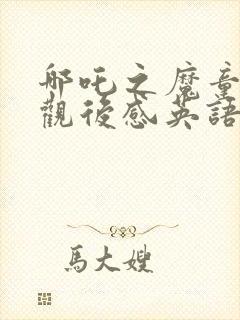 哪吒之魔童
觀後感英語
馬大嫂